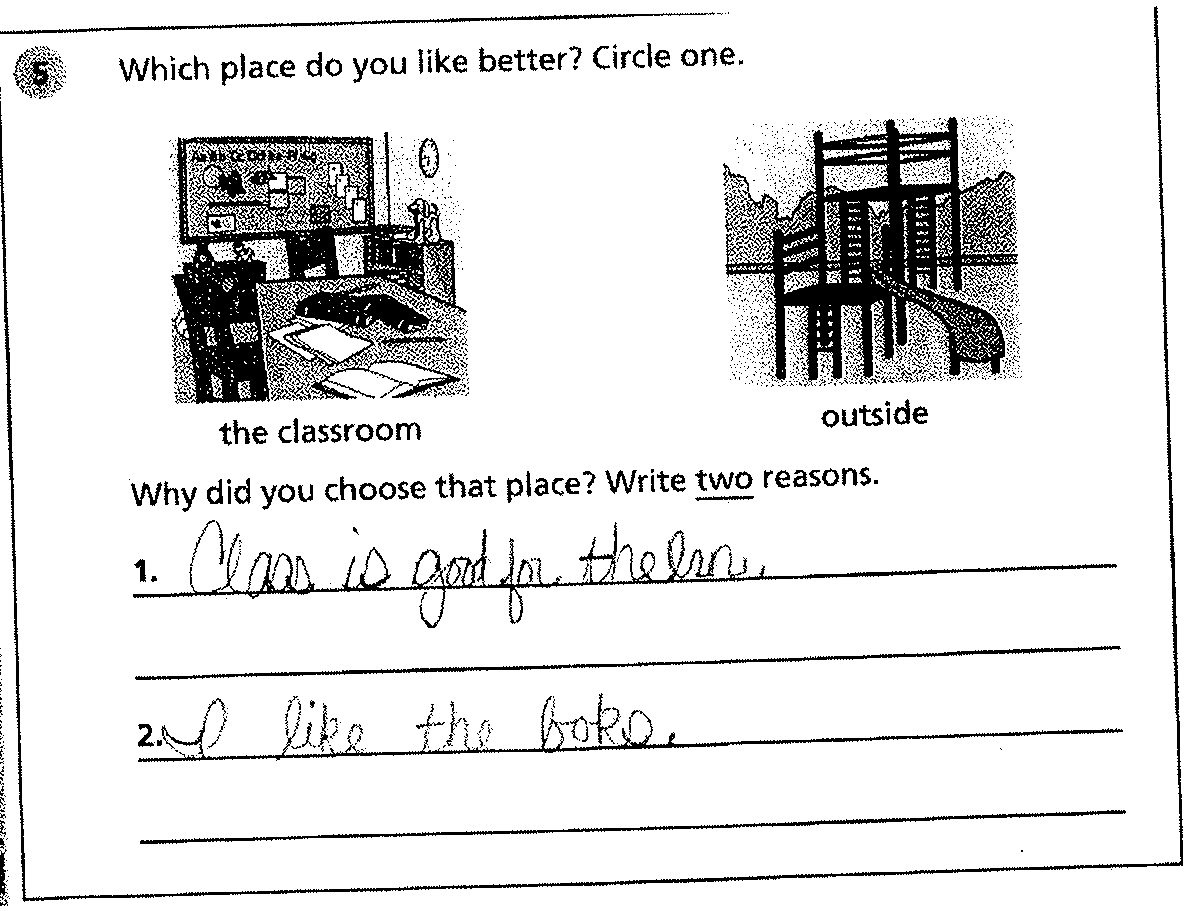 5 Which place do you like better? Circle one.
the classroom
outside
Why did you choose that place? Write two reasons.
1. Class is good for thelrn.
2. I like the boks.